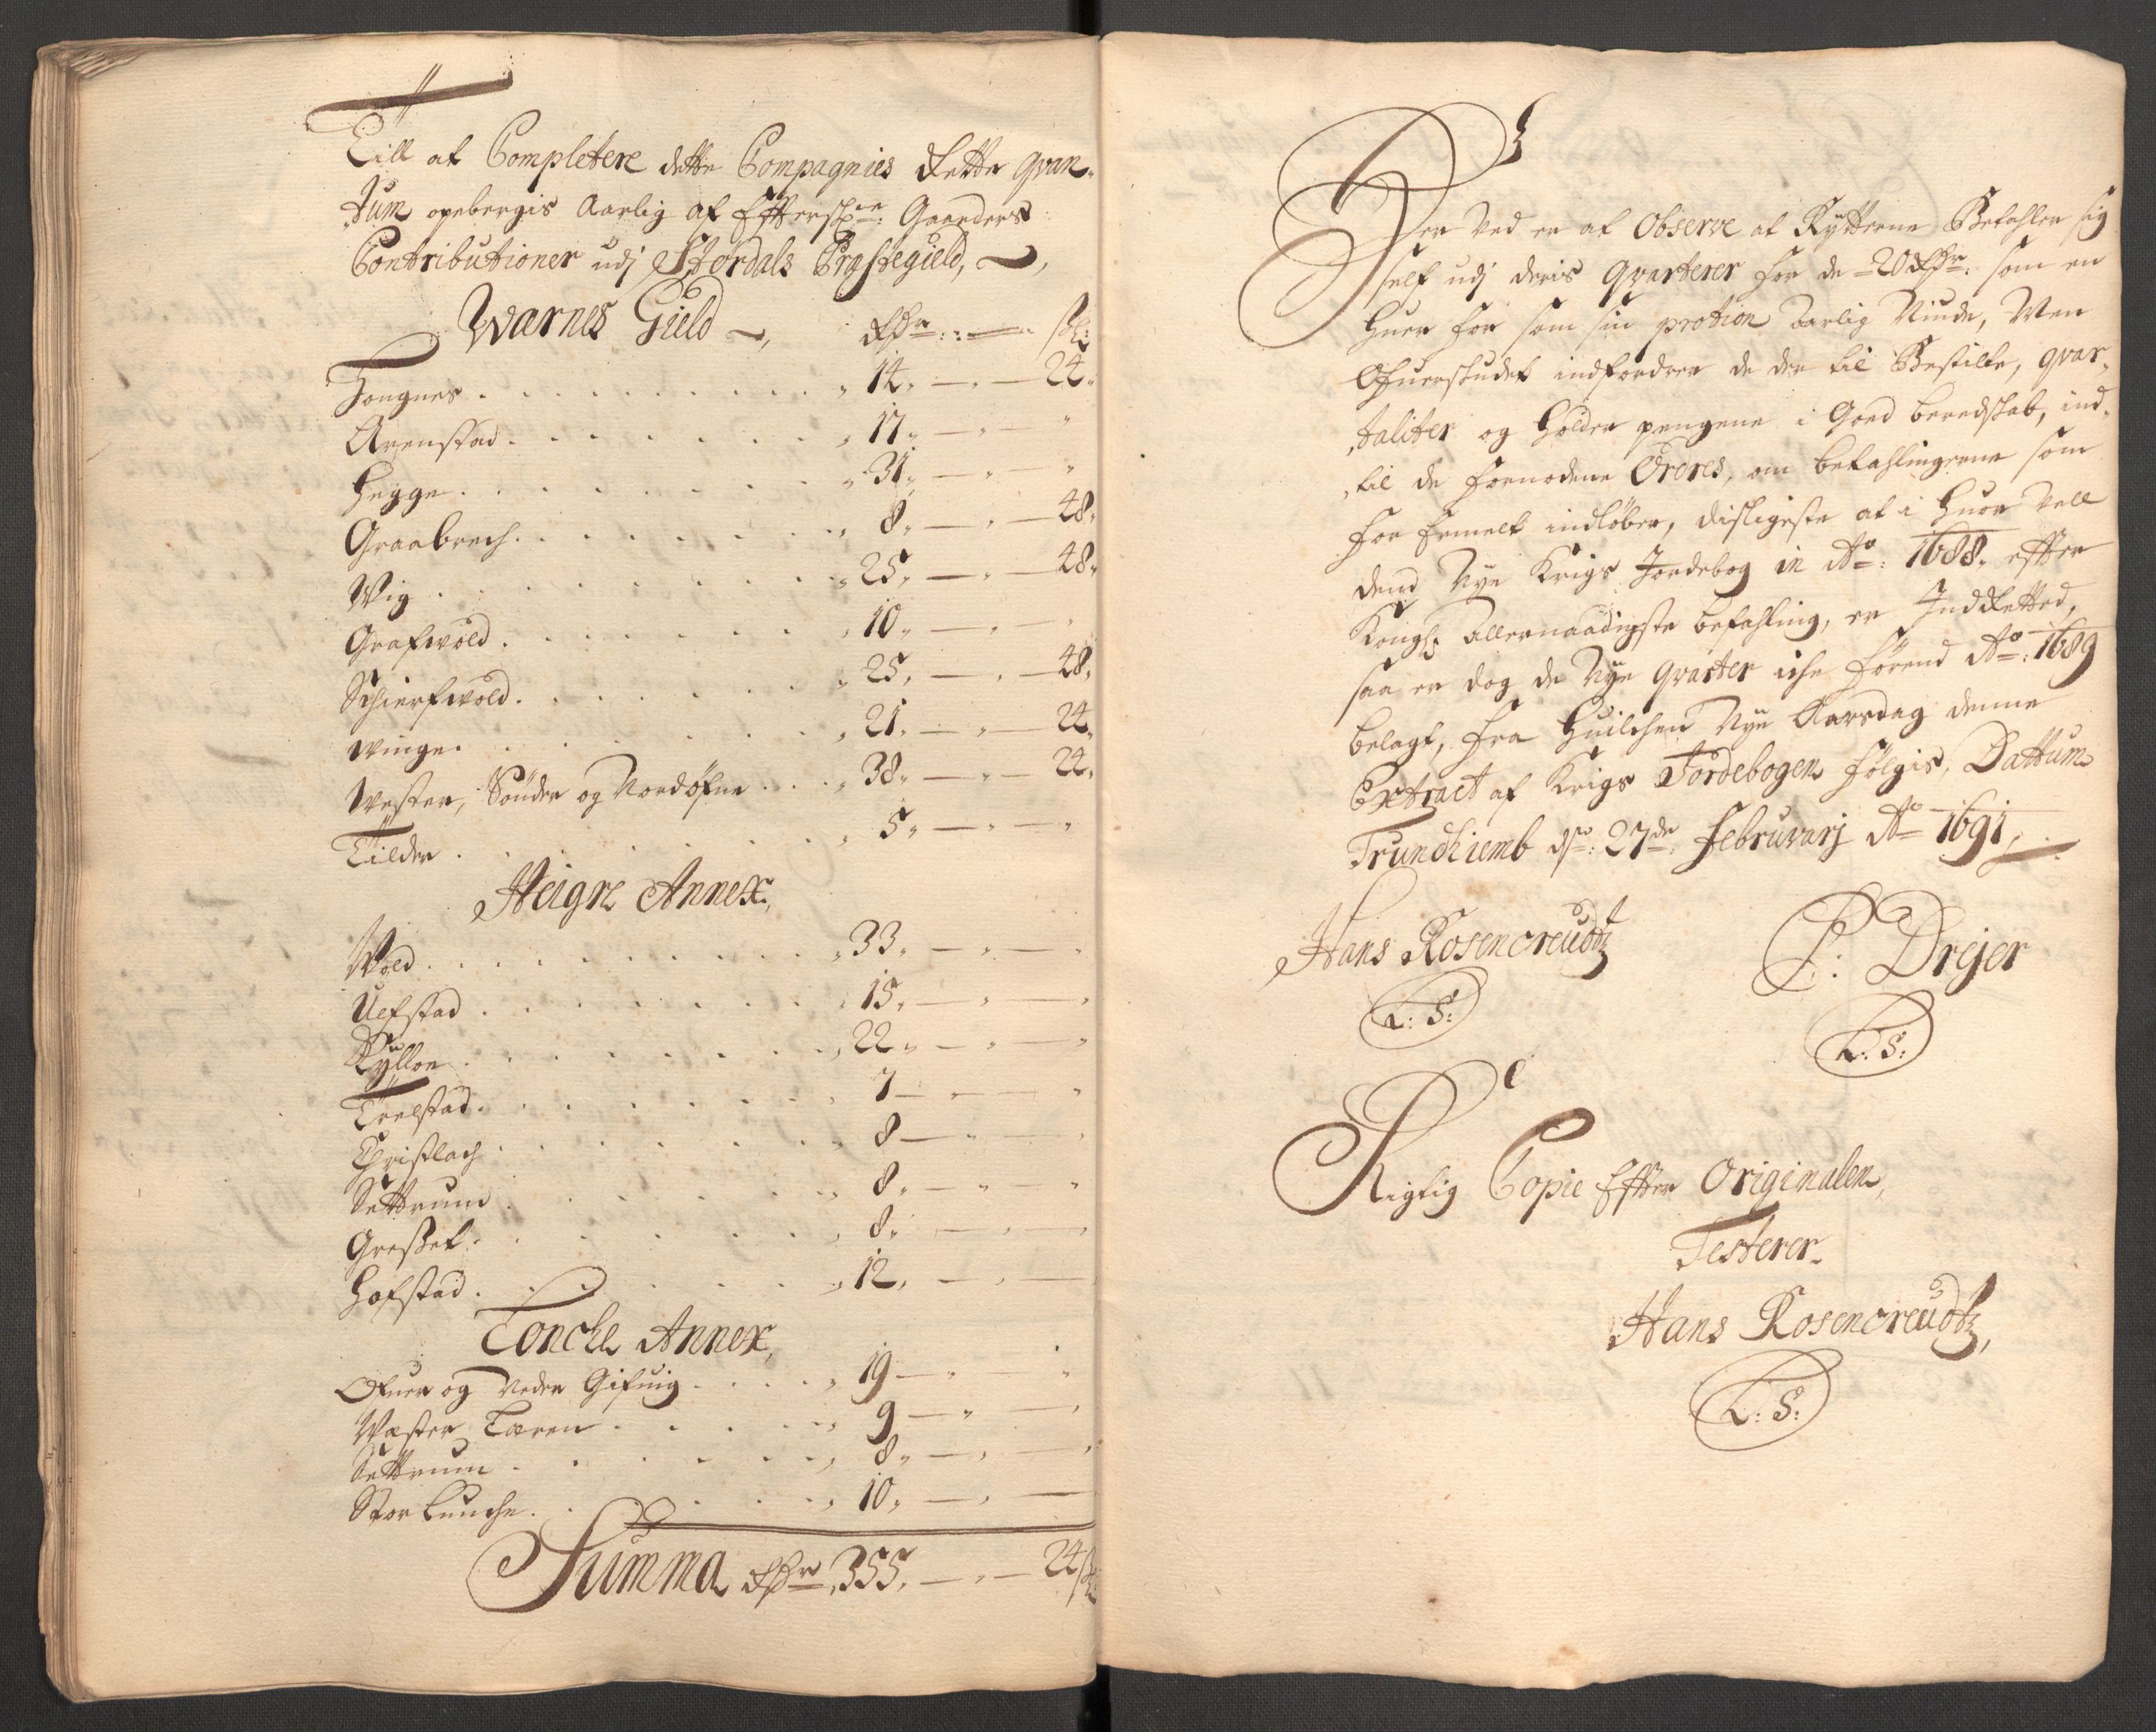 Till at Completere dette Compagnies Rette qvan-
tum opebergis Aarlig af Effterschr: Gaarders
Contributioner udj Størdals Præstegield,
Warnes Gield Rdr: ß:
Hongnes 14 24
Arenstad 17
Hegge 31
Graabrech 8 48
Wig 25 48
Grafwold 10
Schierfwold 25 48
Winge 21 24
Wester, Sønder og Nordøfne 38 24
Tilder 5
Heigre Annex
Wold 33
Uefstad 15
Kylloe 22
Trelstad 7
Christlach 8
Settrum 8
Gresset 8
Hofstad 12
Loncke Annex,
Ofuer og Neder Gifuig 19
Wester Tæren 9
Settrum 8
Stor Lunche 10
Summa Rdr 355 24 ß
Her ved er at Observe at Rytterne Betahler sig
self udj deris qvarterer for de 20 Rdr: som en
huer for som sin protion Aarlig Niude, Men
Ofuerskudet indfordrer de der til Bestilte, qvar-
taliter og holder pengene i Goed beredskab, ind-
til de fornødene Ordres, om betahlingerne som
for ermelt indløber, disligeste at i huor vell
dend Nye Krigs Jordebog in Ao: 1688. effter
Kongl: allernaadigste befahling, er Indretted,
saa er dog de Nye qvarter iche førend Ao: 1689
belagt, fra huilchen Nye Aarsdag denne
Extract af Krigs Jordebogen følgis, Dattum
Trundhiemb dn: 27de: Februvarj Ao 1691,
Hans Rosencreudtz P: Drejer
L: S: L: S:
Rigtig Copie Effter Originalen,
Testerer
Hans Rosencreudtz,
L: S: